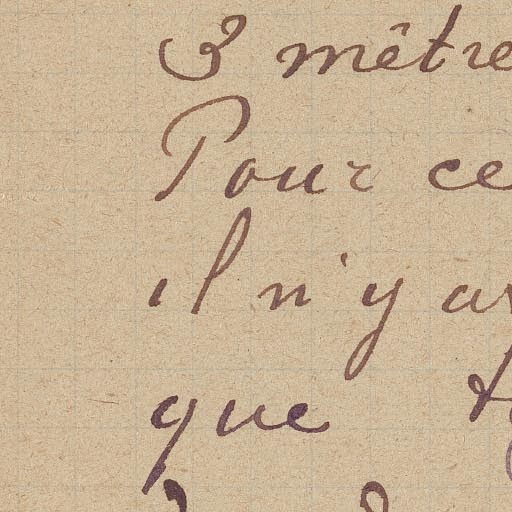 3 mètre
Pour ce
il n'y a
que